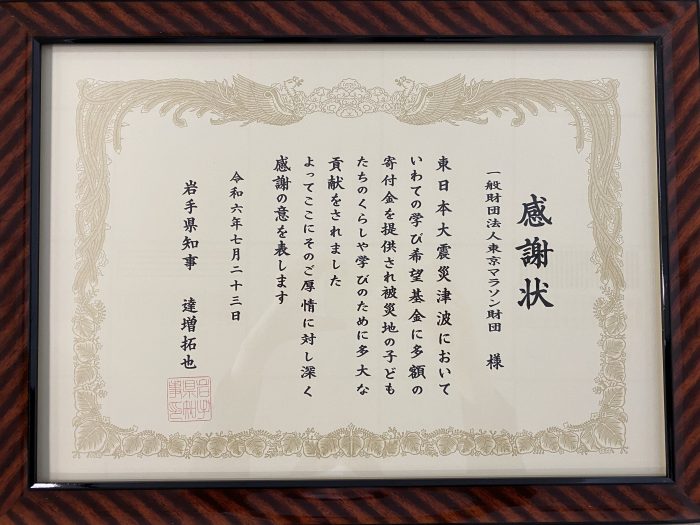 感謝状
一般財団法人東京マラソン財団 様
東日本大震災津波において
いわての学び希望基金に多額の
寄付金を提供され被災地の子ども
たちのくらしや学びのために多大な
貢献をされました
よってここにそのご厚情に対し深く
感謝の意を表します
令和六年七月二十三日
岩手県知事 達増拓也
岩手
県知
事印